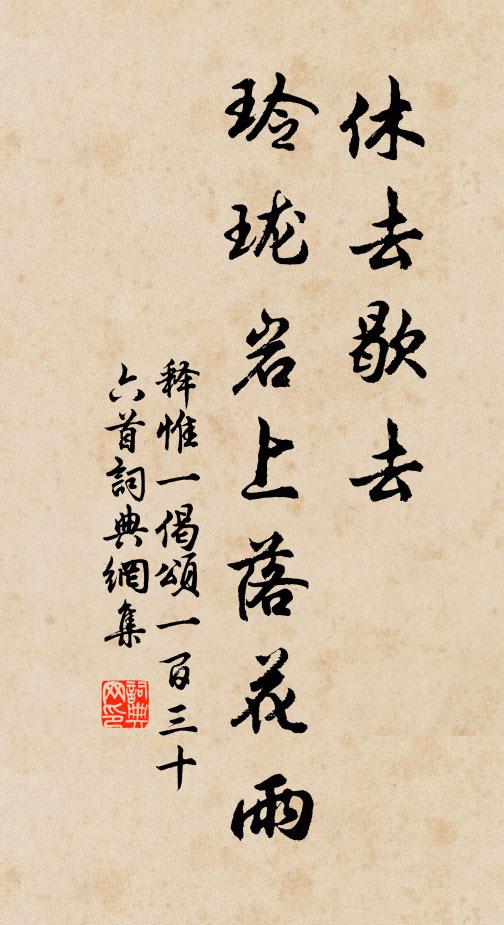 休去歇去
玲珑岩上落花雨
释惟一偈頌一百三十
六首詞典網集
詞典网印